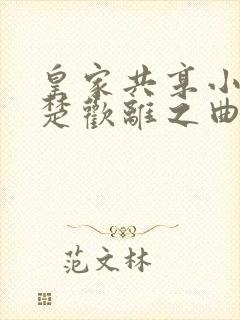 皇家共享小
楚歡離之曲
范文林